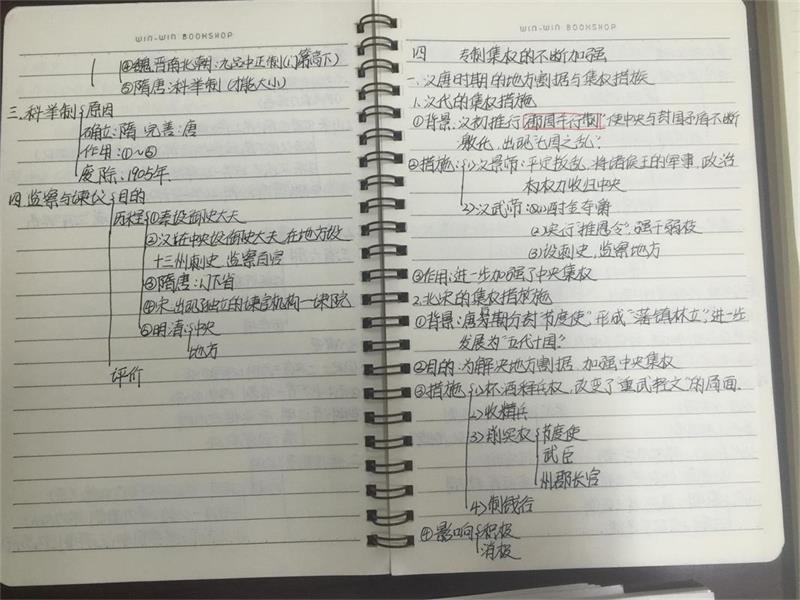 WIN-WIN BOOKSHOP
④魏晋南北朝:九品中正制(门第高下)
⑤隋唐:科举制(才能大小)
三.科举制 原因
确立:隋 完善:唐
作用:①~⑤
废除:1905年.
四.监察与谏议 目的
历程 ①秦设御史大夫
②汉在中央设御史大夫,在地方设
十三州刺史,监察百官
③隋唐:门下省
④宋.出现了独立的谏官机构—谏院
⑤明清:中央
地方
评价
WIN-WIN BOOKSHOP
四 专制集权的不断加强
一、汉唐时期的地方割据与集权措施
1.汉代的集权措施
①背景:汉初推行"郡国并行制"使中央与封国矛盾不断
激化,出现"七国之乱".
②措施:1)汉景帝:平定叛乱,将诸侯王的军事,政治
权力收归中央
2)汉武帝:(1)酎金夺爵
(2)实行"推恩令",强干弱枝
(3)设刺史,监察地方
③作用:进一步加强了中央集权
2.北宋的集权措施
①背景:唐 期分封"节度使",形成"藩镇林立",进一步
发展为"五代十国".
②目的:为解决地方割据,加强中央集权
③措施 1)杯酒释兵权,改变了"重武轻文"的局面.
2)收精兵
3)削实权 节度使
武臣
州郡长官
4)制钱
④影响 积极
消极